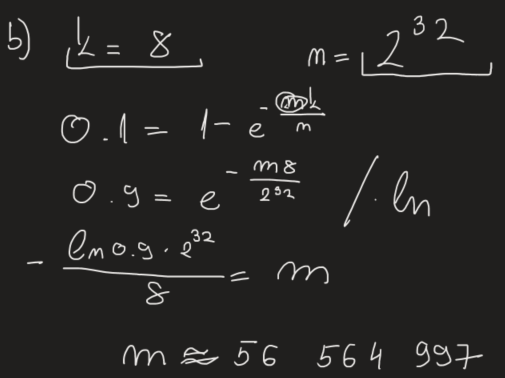 b) k = 8 n = 2^32
0.1 = 1 - e^(-mk/n)
0.9 = e^(-m8/2^32) / · ln
- (ln 0.9 · 2^32)/8 = m
m ≈ 56 564 997